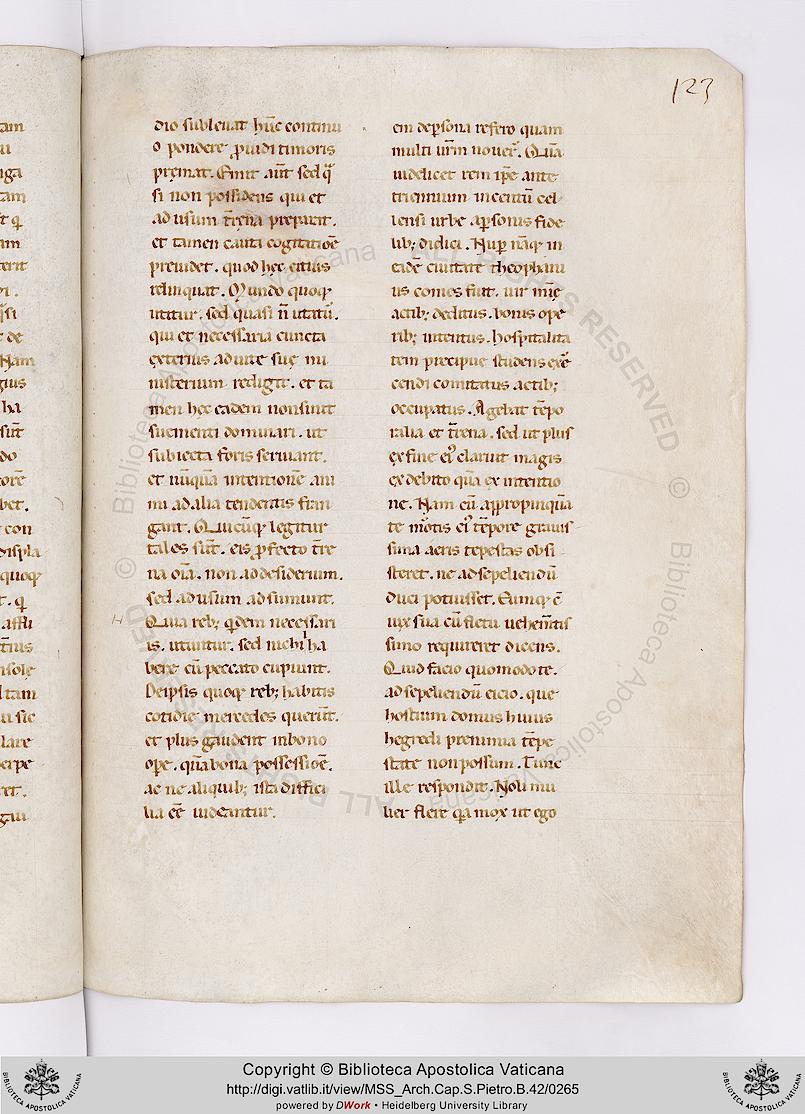 123
dio subleuat hũc continu
o pondere ꝓuidi timoris
pręmat. Emit aũt sed q̃
si non possidens qui et
ad usum t̃rena preparat.
et tamen cauta cogitatiõe
preuidet. quod hęc citius
relinquat. Mundo quoqꝫ
utitur. sed quasi ñ utatũ.
qui et necessaria cuncta
exterius ad uite suę mi
nisterium redigit. et ta
men hęc eadem non sinit
suę menti dominari. ut
subiecta foris seruiant.
et nũquã intentionẽ ani
mi ad alia tendentis fran
gant. Quicũqꝫ legitur
tales sũt. eis ꝓfecto t̃re
na oĩa. non ad desiderium.
sed ad usum adsumunt.
Quia reb; q̃dem necessari
is. utuntur. sed nichil ha
bere cũ peccato cupiunt.
De ipsis quoqꝫ reb; habitis
cotidie mercedes querũt.
et plus gaudent in bono
oꝑe. quã bona possessiõe.
ac ne aliquib; ista diffici
lia eẽ uideantur.
em de ꝑsona refero quam
multi ur̃m nouer̃. Quã
uidelicet rem ip̃e ante
triennium in centũ cel
lensi urbe a ꝑsonis fide
lib; didici. Nuꝑ nãqꝫ in
eadẽ ciuitate theophani
us comes fuit. uir mĩę
actib; deditus. bonis ope
rib; intentus. hospitalita
tem precipue studens exẽ
cendi comitatus actib;
occupatus. Agebat tẽpo
ralia et t̃rena. sed ut plus
ex fine ei᾽ claruit magis
ex debito quã ex intentio
ne. Nam cũ appropinquã
te mortis ei᾽ tẽpore grauis
sima aeris tẽpestas obsi
steret. ne ad sepeliendũ
duci potuisset. Eumqꝫ ẽ
uxor sua cũ fletu uehemẽtis
simo requireret dicens.
Quid facio quomodo te.
ad sepeliendũ eicio. que
hostium domus huius
hegredi pre nimia tẽpe
state non possum. Tunc
ille respondit. Noli mu
lier flere q̃a mox ut ego
Copyright © Biblioteca Apostolica Vaticana
http://digi.vatlib.it/view/MSS_Arch.Cap.S.Pietro.B.42/0265
powered by DWork • Heidelberg University Library